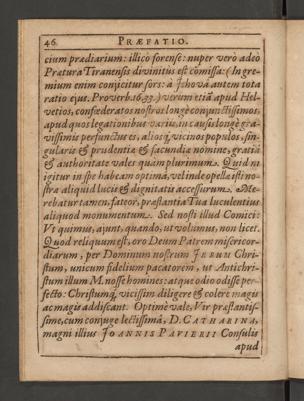 46 PRÆFATIO.
cium prædiarium: illico forense: nuper verò adeò
Prætura Tiranensis divinitus est comissa: (In gre-
mium enim conjicitur sors: à Jhova autem tota
ratio ejus. Proverb. 16. 33.) verùm etiã apud Hel-
vetios, confœderatos nostros longè conjunctissimos,
apud quos legationibus variis, in causis longè gra-
vissimis perfunctus es, aliosq́; vicinos populos, sin-
gularis & prudentiæ & facundiæ nomine, gratiâ
& authoritate vales quàm plurimùm. Quid ni
igitur in spe habeam optimâ, vel inde opellæ isti no-
stræ aliquid lucis & dignitatis accessurum. Me-
rebatur tamen, fateor, præstantia Tua luculentius
aliquod monumentum. Sed nosti illud Comici:
Vt quimus, ajunt, quando, ut volumus, non licet.
Quod reliquum est, oro Deum Patrem misericor-
diarum, per Dominum nostrum JESUM Chri-
stum, unicum fidelium pacatorem, ut Antichri-
stum illum M. nosse homines: atque odio odisse per-
fecto: Christumq́; vicissim diligere & colere magis
ac magis addiscant. Optimè vale, Vir præstantis-
sime, cum conjuge lectissimâ, D. CATHARINA,
magni illius JOANNIS PAVIERII Consulis
apud